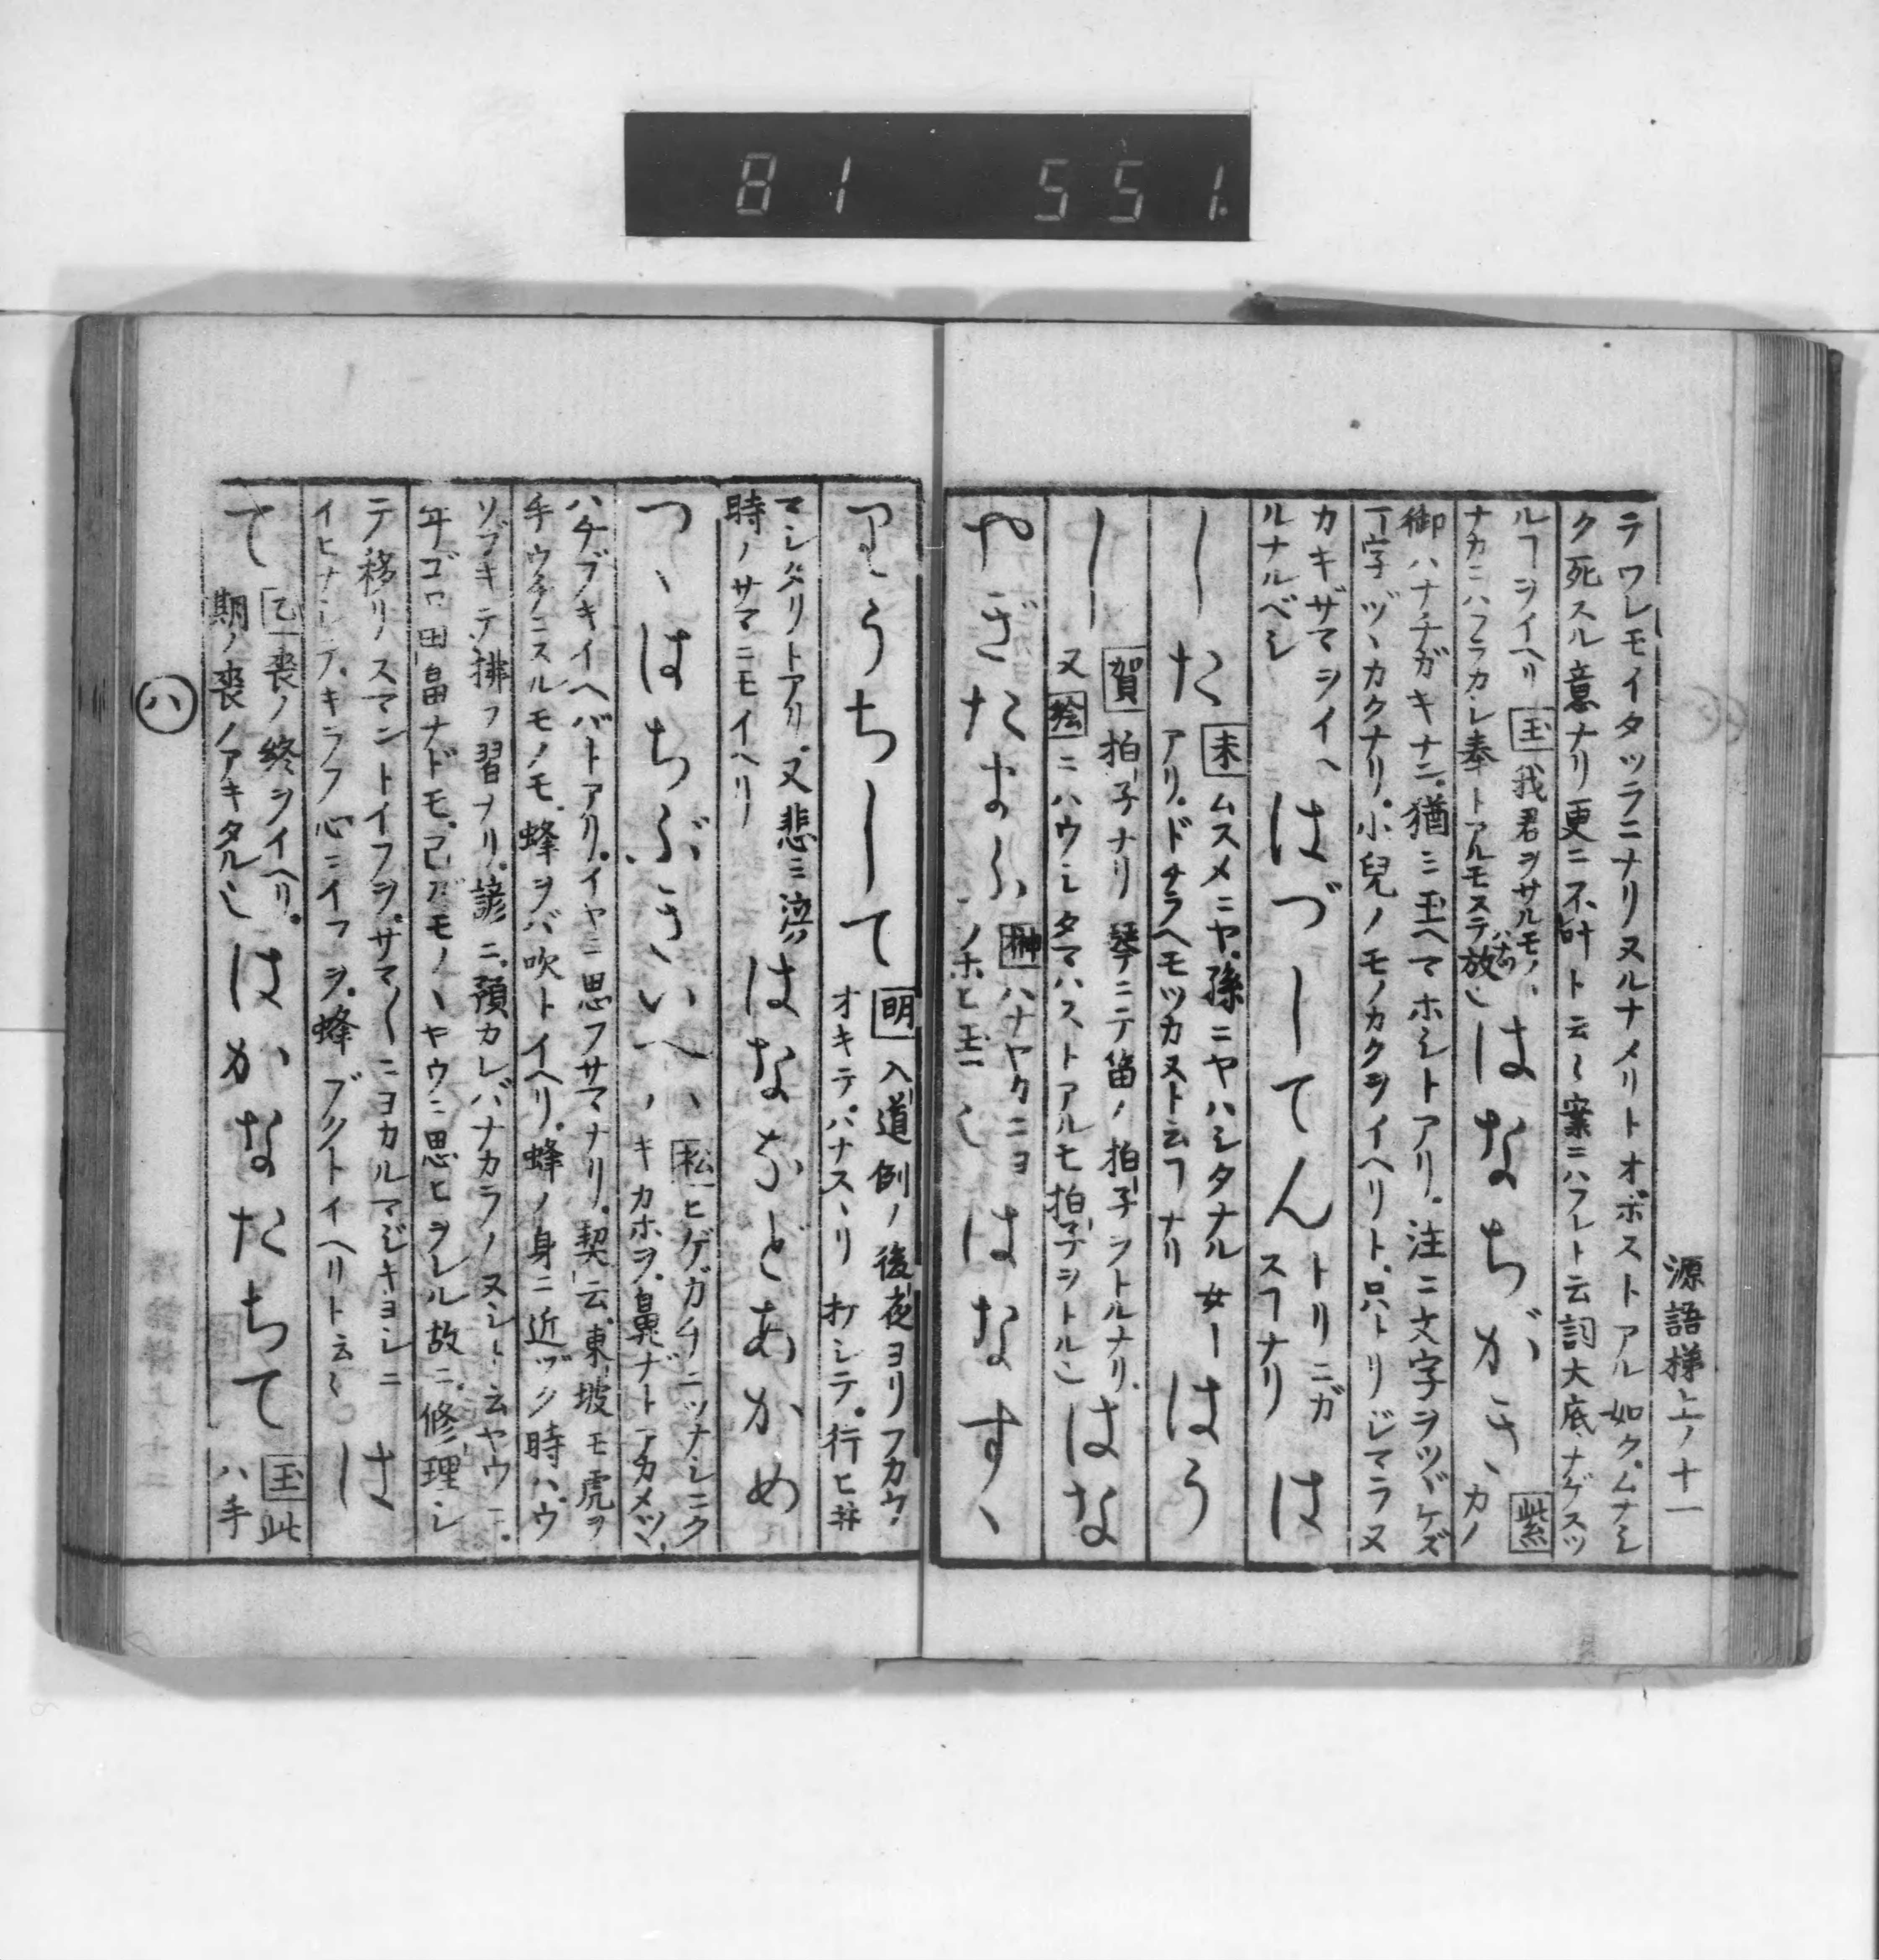 81 551.
源語梯上ノ十一
テワレモイタツラニナリヌルナメリトオボストアル如ク。ムナシ
ク死スル意ナリ更ニ不叶ト云々案ニハフレト云詞大底ナゲスツ
ルヿヲイヘリ 玉 我君ヲサルモノヽ
ナカニハフラカシ奉トアルモステ放也
はなちがき
紫 カノ
御ハナチガキナン。猶ミ玉ヘマホシトアリ。注ニ文字ヲツヾケズ
一字ヅヽカクナリ。小兒ノモノカクヲイヘリト。只トリジマラヌ
カキザマヲイヘ
ルナルベシ
はづしてん
トリニガ
スヿナリ
はした
末 ムスメニヤ、孫ニヤハシタナル女ノ
アリ。ドチラヘモツカヌト云フナリ
はうし
賀 拍子ナリ 琴ニテ笛ノ拍子ヲトルナリ。
又 絵 ニハウシタマハストアルモ拍子ヲトル也
はなやぎたまふ
榊 ハナヤカニヨ
ソホヒ玉フ也
はなすゝ
りうちして
明 入道例ノ後夜ヨリフカウ
オキテ。ハナスヽリ打シテ。行ヒ
マシタリトアリ。又悲ミ泣
時ノサマニモイヘリ
はななどあかめ
つゝはちぶきいへハ
松 ヒゲガチニツナシニク
キカホヲ。鼻ナドアカメツヽ
ハチブキイヘバトアリ。イヤニ思フサマナリ。契云。東坡モ虎ヲ
手ウチニスルモノモ。蜂ヲバ吹トイヘリ。蜂ノ身ニ近ヅク時ハ。ウ
ソブキテ拂フ習ナリ。諺ニ。預カレバナカラノヌシト云ヤウニ。
年ゴロ田畠ナドモ。己ガモノヽヤウニ思ヒヲレル故ニ。修理シ
テ移リスマントイフヲ。サマ〱ニヨカルマジキヨシニ
イヒナシテ。キラフ心ニイフヲ。蜂ブクトイヘリト云々
はして
乙 喪ノ終ヲイヘリ。
期ノ喪ノアキタル也
はかなたちて
玉 此
ハ手
ハ